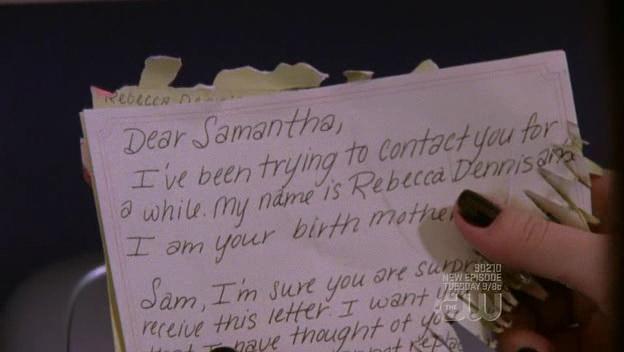 Rebecca
Dear Samantha,
I've been trying to contact you for
a while. My name is Rebecca Dennison
I am your birth mother
Sam, I'm sure you are surpr
receive this letter I want
that I have thought of yo
90210
NEW EPISODE
TUESDAY 9/8c
THE CW